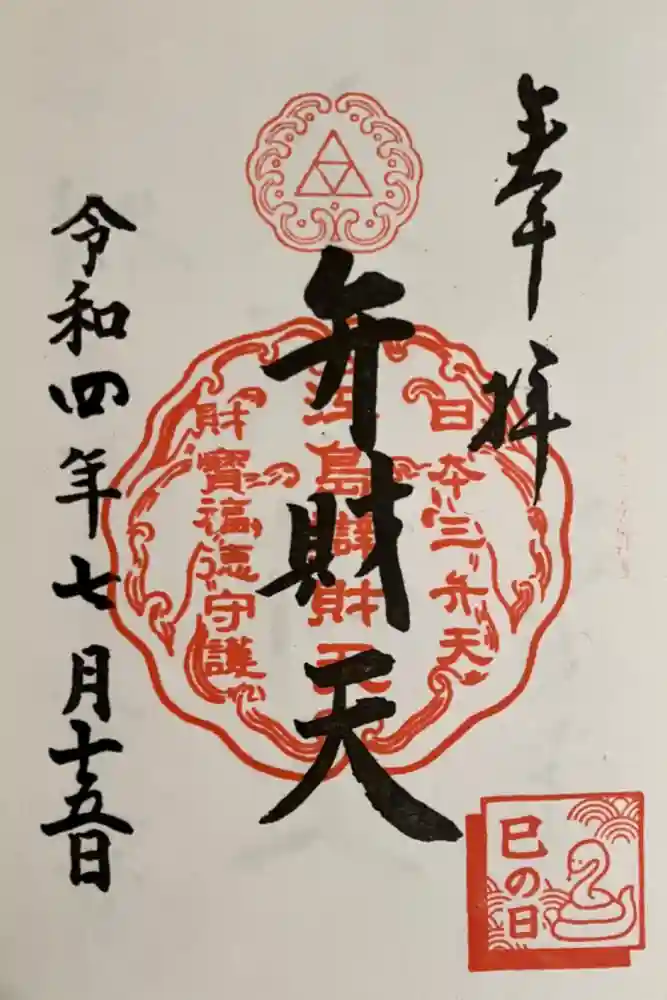 奉拝
日本三弁天
弁財天
江島辯財天
財寶福徳守護
令和四年七月十五日
巳の日